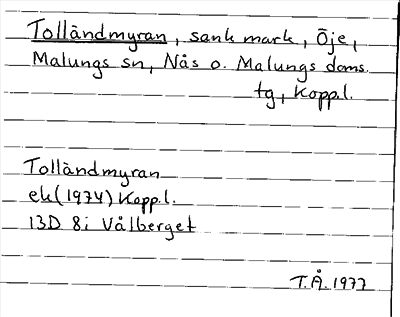 Tolländmyran, sank mark, Öje,
Malungs sn, Nås o. Malungs doms.
tg, Koppl.
Tolländmyran
ek (1974) Koppl.
13D 8i Vålberget
T.Å. 1977